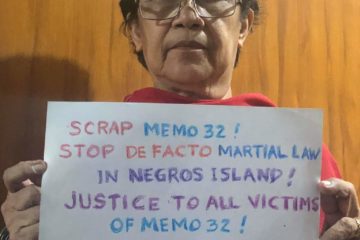 SCRAP MEMO 32!
STOP DE FACTO MARTIAL LAW
IN NEGROS ISLAND!
JUSTICE TO ALL VICTIMS
OF MEMO 32!